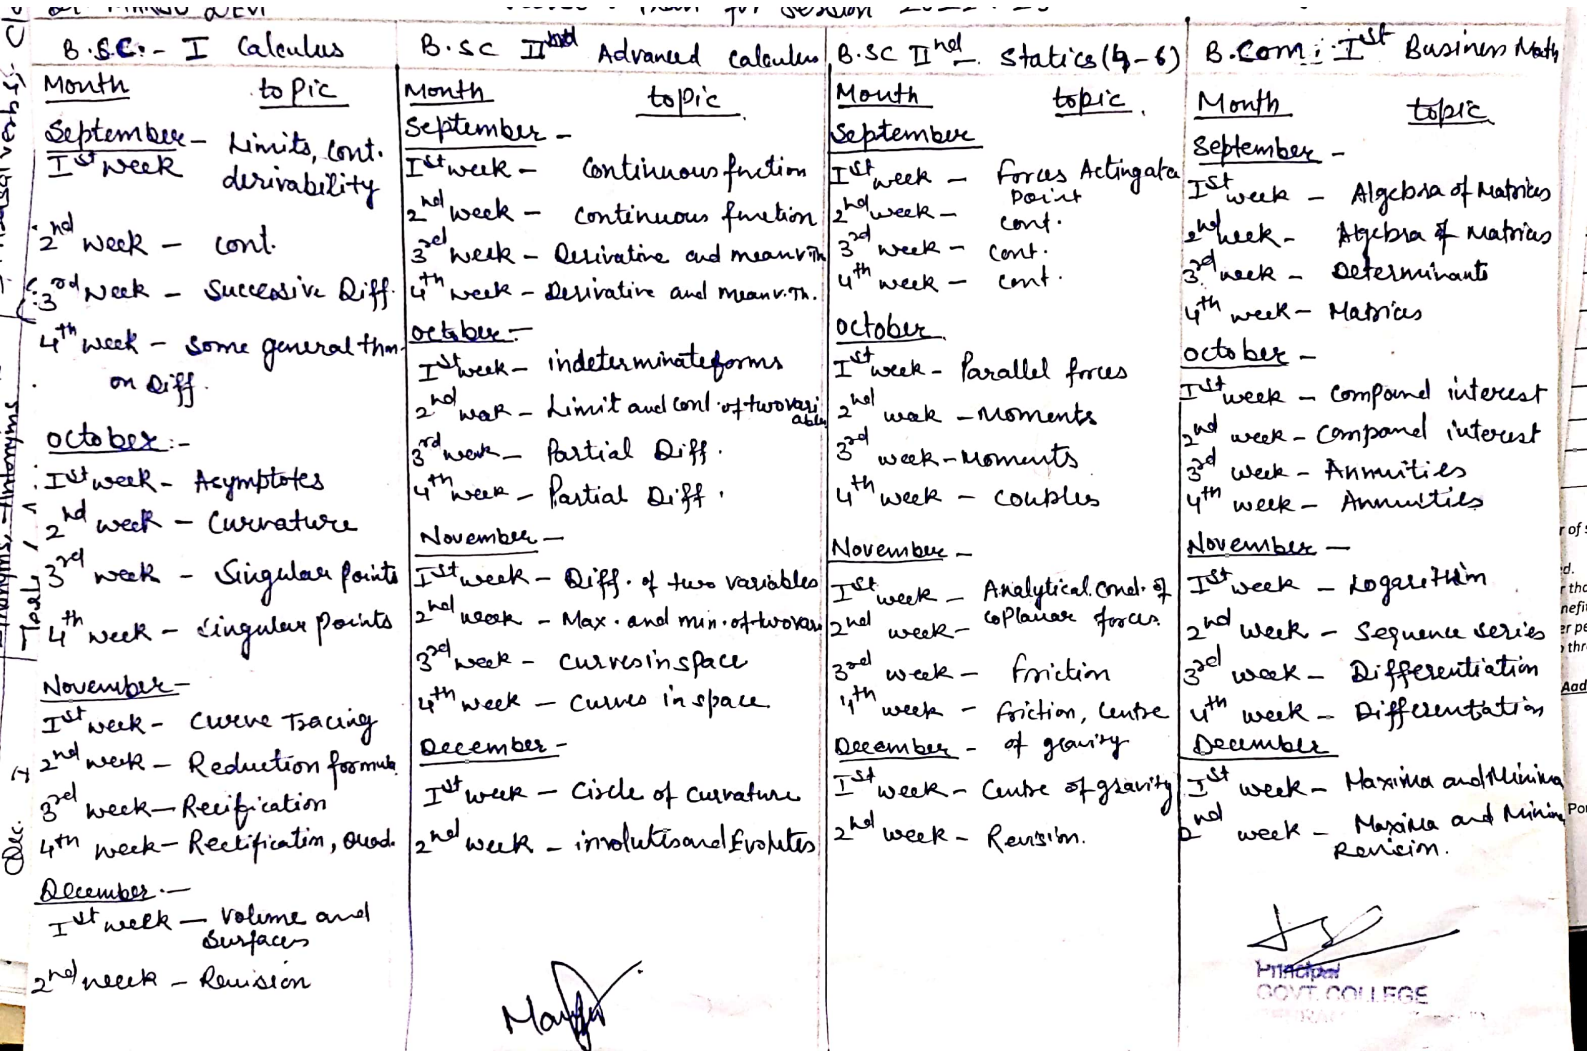 for session
B.S.C. - I Calculus
Month topic
September - Limits, cont.
Ist week derivability
2nd week - cont.
3rd week - Successive Diff.
4th week - Some general thm.
on Diff.
october :-
Ist week - Asymptotes
2nd week - Curvature
3rd week - Singular points
4th week - Singular points
November -
Ist week - Curve Tracing
2nd week - Reduction formula
3rd week - Recification
4th week - Rectification, Quad.
December :-
Ist week - Volume and
Surfaces
2nd week - Revision
B.SC IInd Advanced Calculus
Month topic
September -
Ist week - Continuous fnction
2nd week - Continuous function
3rd week - Derivative and meanv.Th
4th week - Derivative and meanv.Th.
october :-
Ist week - indeterminate forms
2nd week - Limit and cont. of two vari
ables
3rd week - Partial Diff.
4th week - Partial Diff.
November -
Ist week - Diff. of two variables
2nd week - Max. and min. of two var
3rd week - curves in space
4th week - Curves in space
December -
Ist week - Circle of curvature
2nd week - involutes and Evolutes
B.SC IInd - Statics (4-6)
Month topic.
September
Ist week - Forces Acting at a
Point
2nd week - cont.
3rd week - cont.
4th week - cont.
october
Ist week - Parallel forces
2nd week - Moments
3rd week - Moments
4th week - couples
November -
Ist week - Analytical. Cond. of
2nd week - coPlanar forces.
3rd week - friction
4th week - friction, Centre
December - of gravity
Ist week - Centre of gravity
2nd week - Revision.
B.Com: Ist Business Math
Month topic
September -
Ist week - Algebra of Matrices
2nd week - Algebra of Matrices
3rd week - Determinants
4th week - Matrices
october -
Ist week - Compound interest
2nd week - Compound interest
3rd week - Annuities
4th week - Annuities
November -
Ist week - Logarithim
2nd week - Sequence series
3rd week - Differentiation
4th week - Differentiation
December
Ist week - Maxima and Minima
2nd week - Maxima and Minima
Revision.
Principal
GOVT. COLLEGE